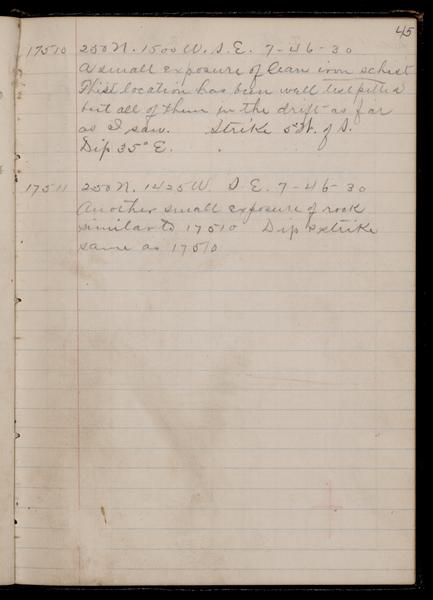 45
17510 250 N. 1500 W. S.E. 7-46-30
A small exposure of lean iron schist
This location has been well test pitted
but all of them in the drift as far
as I saw. Strike 5° W. of S.
Dip 35° E.
17511 250 N. 1425 W. S.E. 7-46-30
Another small exposure of rock
similar to 17510 Dip & strike
same as 17510